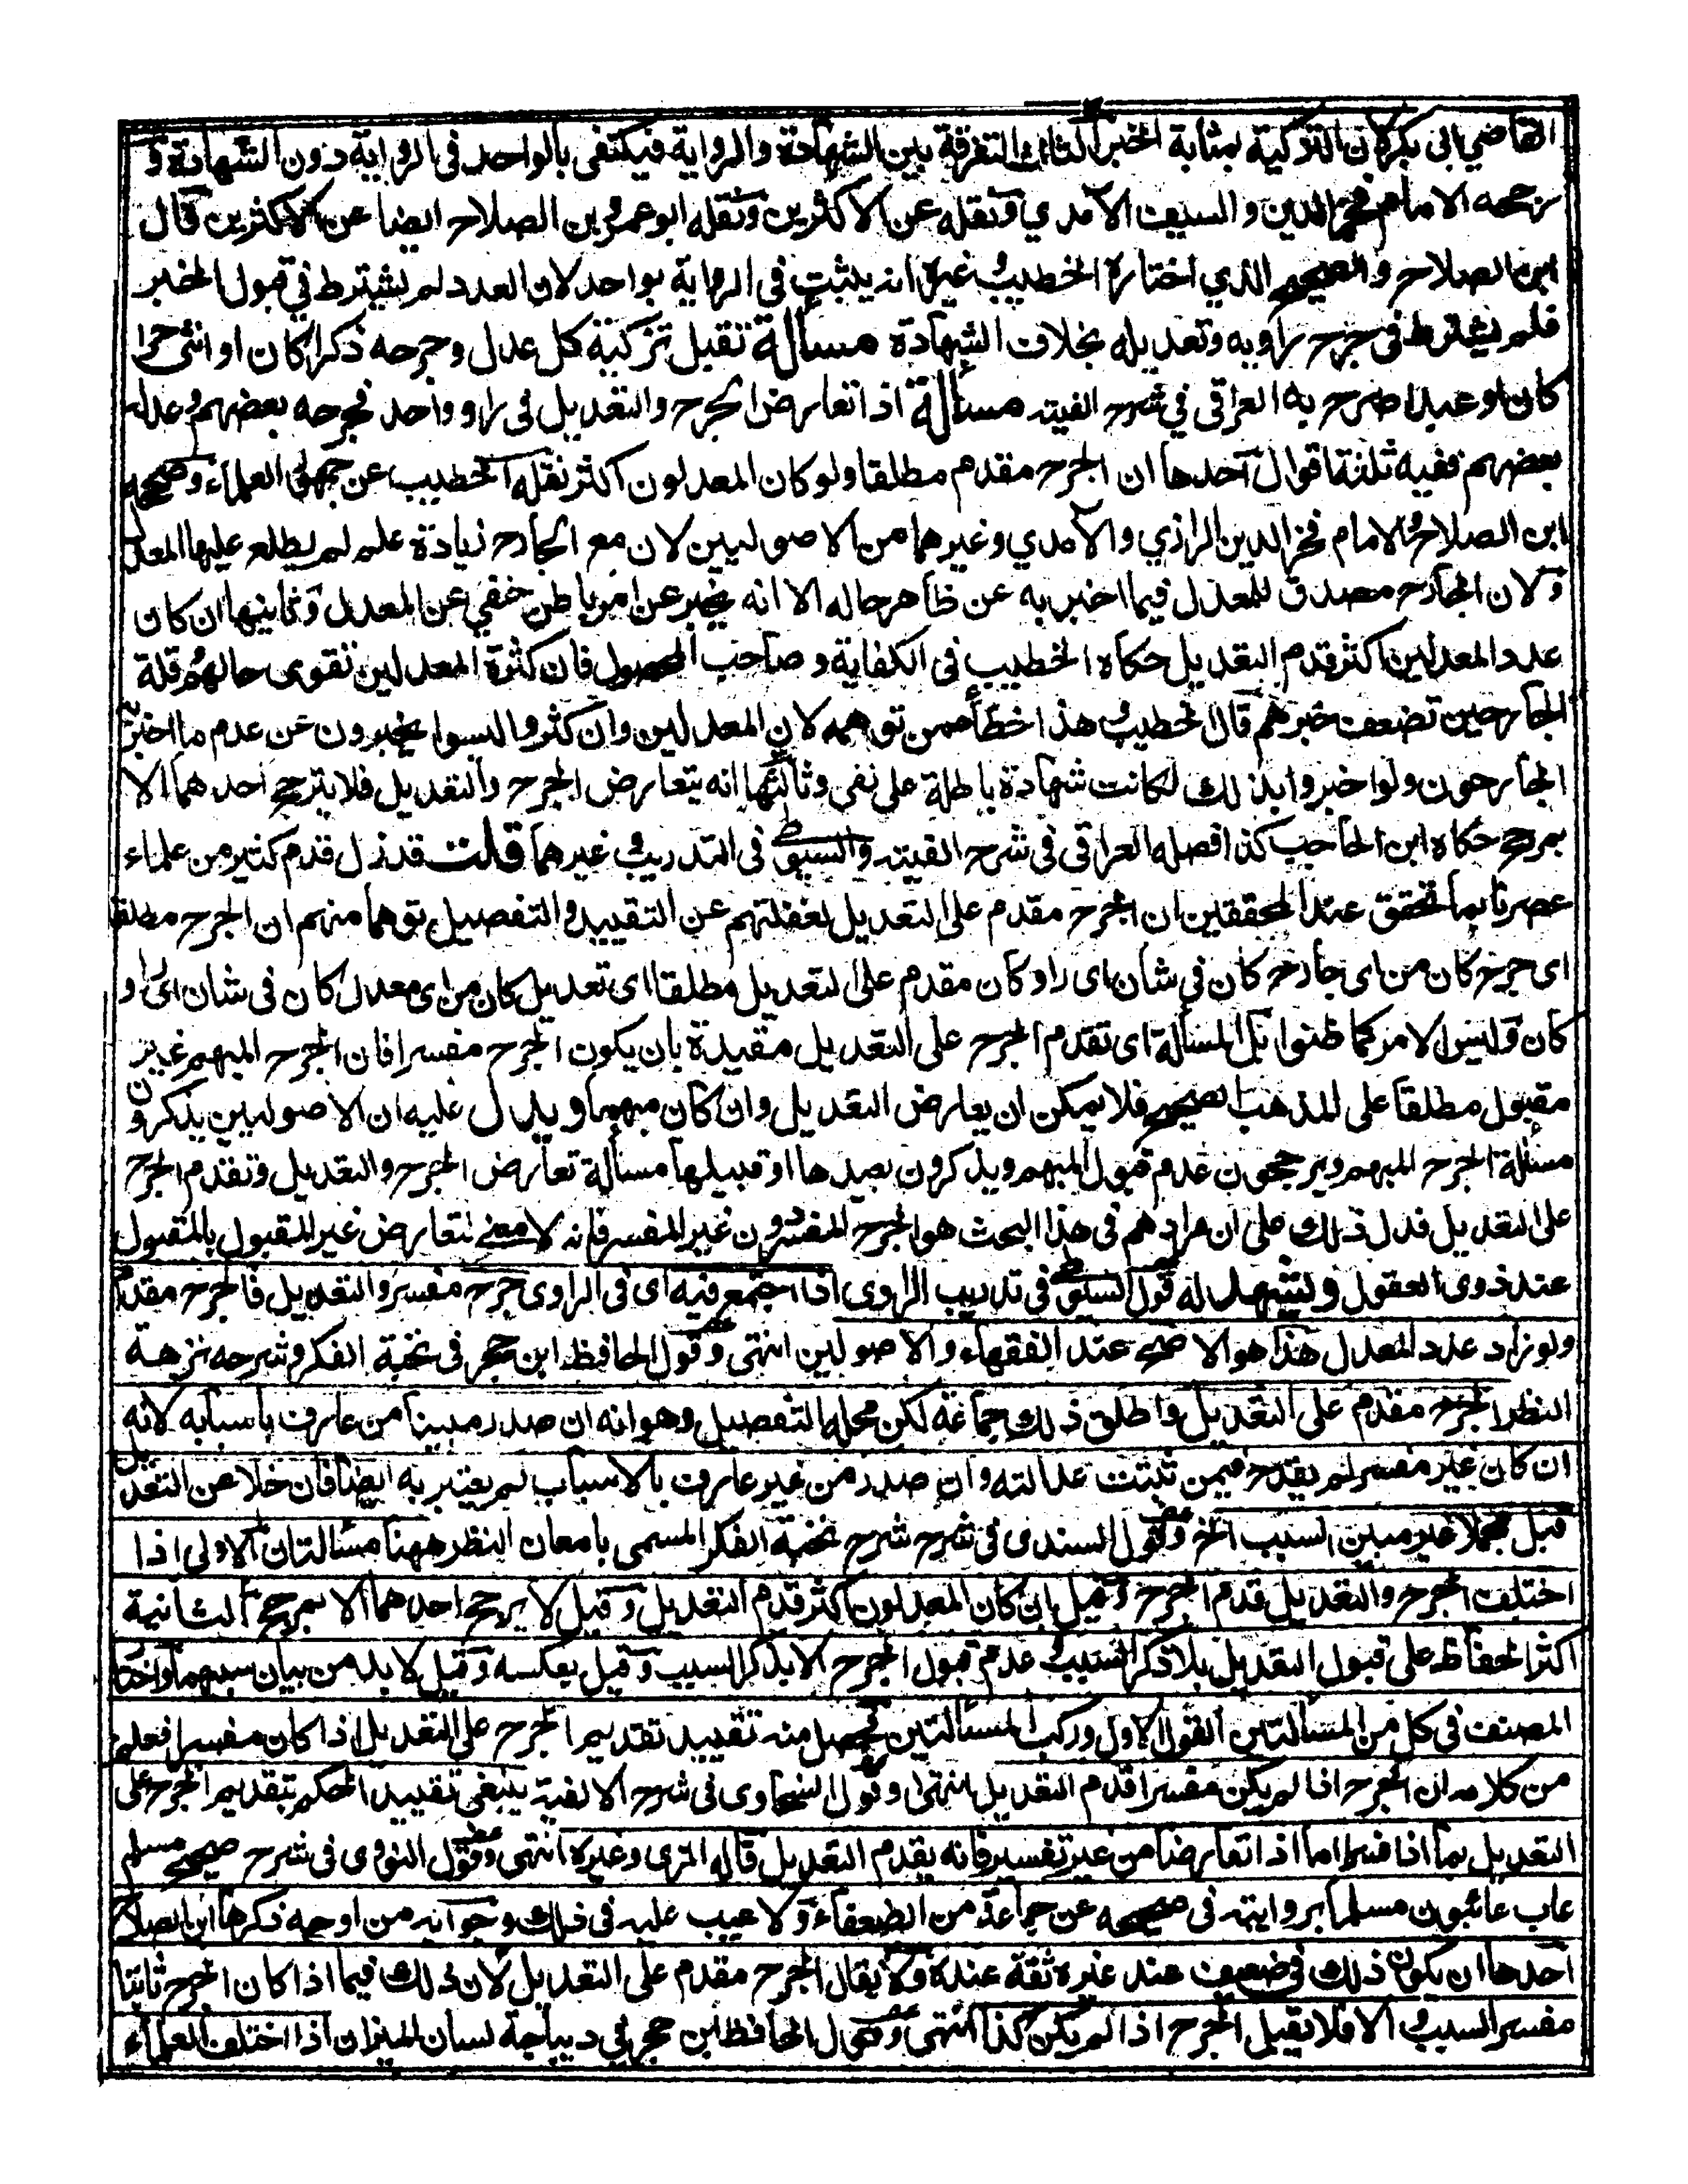 القاضي ابى بكر لان التزكية بمثابة الخبر الثالث التفرقة بين الشهادة والرواية فيكتفى بالواحد فى الرواية دون الشهادة و
رجحه الامام فخر الدين والسيف الآمدي ونقله عن الاكثرين ونقله ابو عمرو بن الصلاح ايضا عن الاكثرين قال
ابن الصلاح والصحيح الذي اختاره الخطيب وغيره انه يثبت في الرواية بواحد لان العدد لم يشترط في قبول الخبر
فلم يشترط فى جرح راويه وتعديله بخلاف الشهادة مسألة تقبل تزكية كل عدل وجرحه ذكرا كان او انثى حرا
كان او عبدا صرح به العراقي في شرح الفيته مسألة اذا تعارض الجرح والتعديل فى راو واحد فجرحه بعضهم وعدله
بعضهم ففيه ثلثة اقوال احدها ان الجرح مقدم مطلقا ولو كان المعدلون اكثر نقله الخطيب عن جمهور العلماء وصححه
ابن الصلاح والامام فخر الدين الرازي والآمدي وغيرهما من الاصوليين لان مع الجارح زيادة علم لم يطلع عليها المعدل
ولان الجارح مصدق للمعدل فيما اخبر به عن ظاهر حاله الا انه يخبر عن امر باطن خفي عن المعدل وثانيها ان كان
عدد المعدلين اكثر قدم التعديل حكاه الخطيب فى الكفاية وصاحب المحصول فان كثرة المعدلين تقوى حالهم وقلة
الجارحين تضعف خبرهم قال الخطيب وهذا خطأ ممن توهمه لان المعدلين وان كثروا ليسوا يخبرون عن عدم ما اخبر به
الجارحون ولو اخبروا بذلك لكانت شهادة باطلة على نفى وثالثها انه يتعارض الجرح والتعديل فلا يترجح احدهما الا
بمرجح حكاه ابن الحاجب كذا فصله العراقى فى شرح الفيته والسيوطى فى التدريب وغيرهما قلت قد زل قدم كثير من علماء
عصرنا بما تحقق عند المحققين ان الجرح مقدم على التعديل لغفلتهم عن التقييد والتفصيل توهما منهم ان الجرح مطلقا
اى جرح كان من اى جارح كان في شان اى راو كان مقدم على التعديل مطلقا اى تعديل كان من اى معدل كان فى شان اى راو
كان وليس الامر كما ظنوا بل المسألة اى تقدم الجرح على التعديل مقيدة بان يكون الجرح مفسرا فان الجرح المبهم غير
مقبول مطلقا على المذهب الصحيح فلا يمكن ان يعارض التعديل وان كان مبهما ويدل عليه ان الاصوليين يذكرون
مسئلة الجرح المبهم ويرجحون عدم قبول المبهم ويذكرون بعيدها او قبيلها مسألة تعارض الجرح والتعديل وتقدم الجرح
على التعديل فدل ذلك على ان مرادهم فى هذا البحث هو الجرح المفسر دون غير المفسر فانه لا معنى لتعارض غير المقبول بالمقبول
عند ذوى العقول ويشهد له قول السيوطى فى تدريب الراوى اذا اجتمع فيه اى فى الراوى جرح مفسر والتعديل فالجرح مقدم
ولو زاد عدد المعدل هذا هو الاصح عند الفقهاء والاصوليين انتهى وقول الحافظ ابن حجر فى نخبة الفكر وشرحه نزهة
النظر الجرح مقدم على التعديل واطلق ذلك جماعة لكن محله التفصيل وهو انه ان صدر مبينا من عارف باسبابه لانه
ان كان غير مفسر لم يقدح فيمن ثبتت عدالته وان صدر من غير عارف بالاسباب لم يعتبر به ايضا فان خلا عن التعديل
قبل مجملا غير مبين السبب الخ وقول السندى فى شرح شرح نخبة الفكر المسمى بامعان النظر ههنا مسألتان الاولى اذا
اختلف الجرح والتعديل قدم الجرح وقيل ان كان المعدلون اكثر قدم التعديل وقيل لا يرجح احدهما الا بمرجح الثانية
اكثر الحفاظ على قبول التعديل بلا ذكر السبب وعدم قبول الجرح الا بذكر السبب وقيل بعكسه وقيل لا بد من بيان سببهما واختار
المصنف فى كل من المسألتين القول الاول وركب المسألتين فحصل منه تقييد تقديم الجرح على التعديل اذا كان مفسرا فعلم
من كلامه ان الجرح اذا لم يكن مفسرا قدم التعديل انتهى وقول السخاوى فى شرح الالفية ينبغى تقييد الحكم بتقديم الجرح على
التعديل بما اذا فسر اما اذا تعارضا من غير تفسير فانه يقدم التعديل قاله المزى وغيره انتهى وقول النووى فى شرح صحيح مسلم
عاب عائبون مسلما بروايته فى صحيحه عن جماعة من الضعفاء ولا عيب عليه فى ذلك وجوابه من اوجه ذكرها ابن الصلاح
احدها ان يكون ذلك فى ضعيف عند غيره ثقة عنده ولا يقال الجرح مقدم على التعديل لان ذلك فيما اذا كان الجرح ثابتا
مفسر السبب والا فلا يقبل الجرح اذا لم يكن كذا انتهى وقول الحافظ ابن حجر في ديباجة لسان الميزان اذا اختلف العلماء